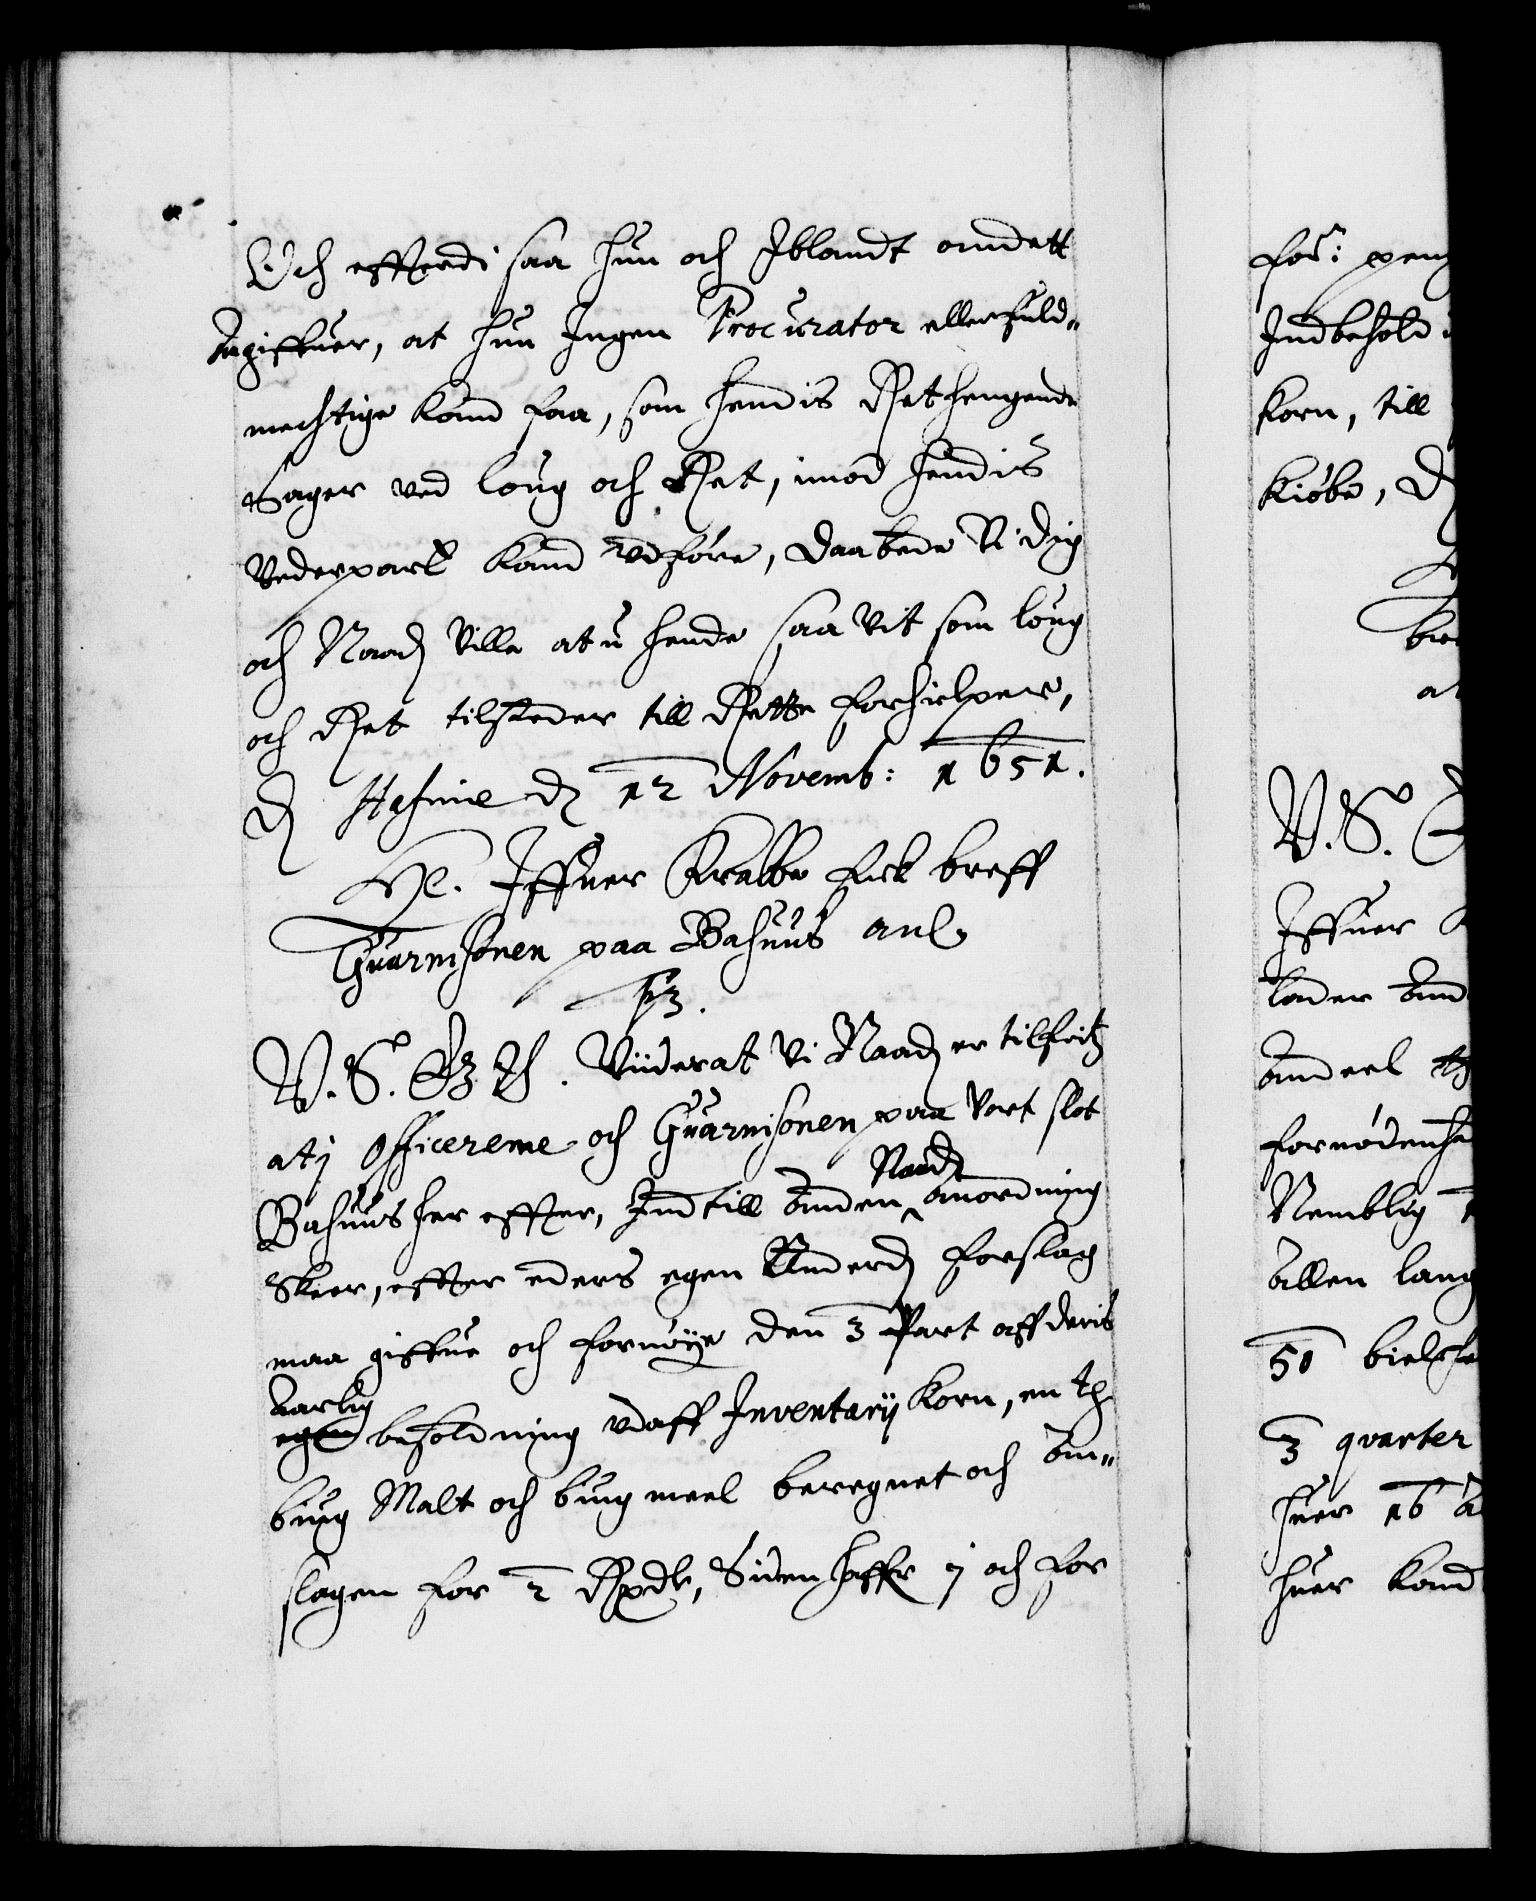 Och efftterdi saa hun och Iblandt andett
Angiffuer, at hun Ingen Procurator eller fuld-
mechtige kand faa, som hendis Rethengende
Sager ved loug och Ret, imod hendis
Vederpart kand udføre, Daa bede Vi dig
och Naad Ville at u hende saa Vit som loug
och Ret tilsteder till Rette forhielper,
D Hafniæ D 12 Novemb: 1651.
He. Iffuer Krabbe fick breff
Guarnisonen paa Bahuus anl.
V. S. G. T. Viider at Vi Naad er tilfritz
at i Officererne och Guarnisonen paa Vort slot
Bahuus her effter, Ind till anden Naad anordning
skeer, effter eders egen Underd forslag
maa giffue och fornøye den 3 Part aff deris
aarlig
beholdning udaff Inventarij korn, en th
biug Malt och biug meel beregnet och an-
slagen for 2 Rixdr, Siden haffr i och for
for: peng
Indbehold
korn, till
kiøbe, D
V. S.
Iffuer
lader
andeel
fornødenhe
Nemblig
allen lang
50
3 quarter
huer 16
huer kand